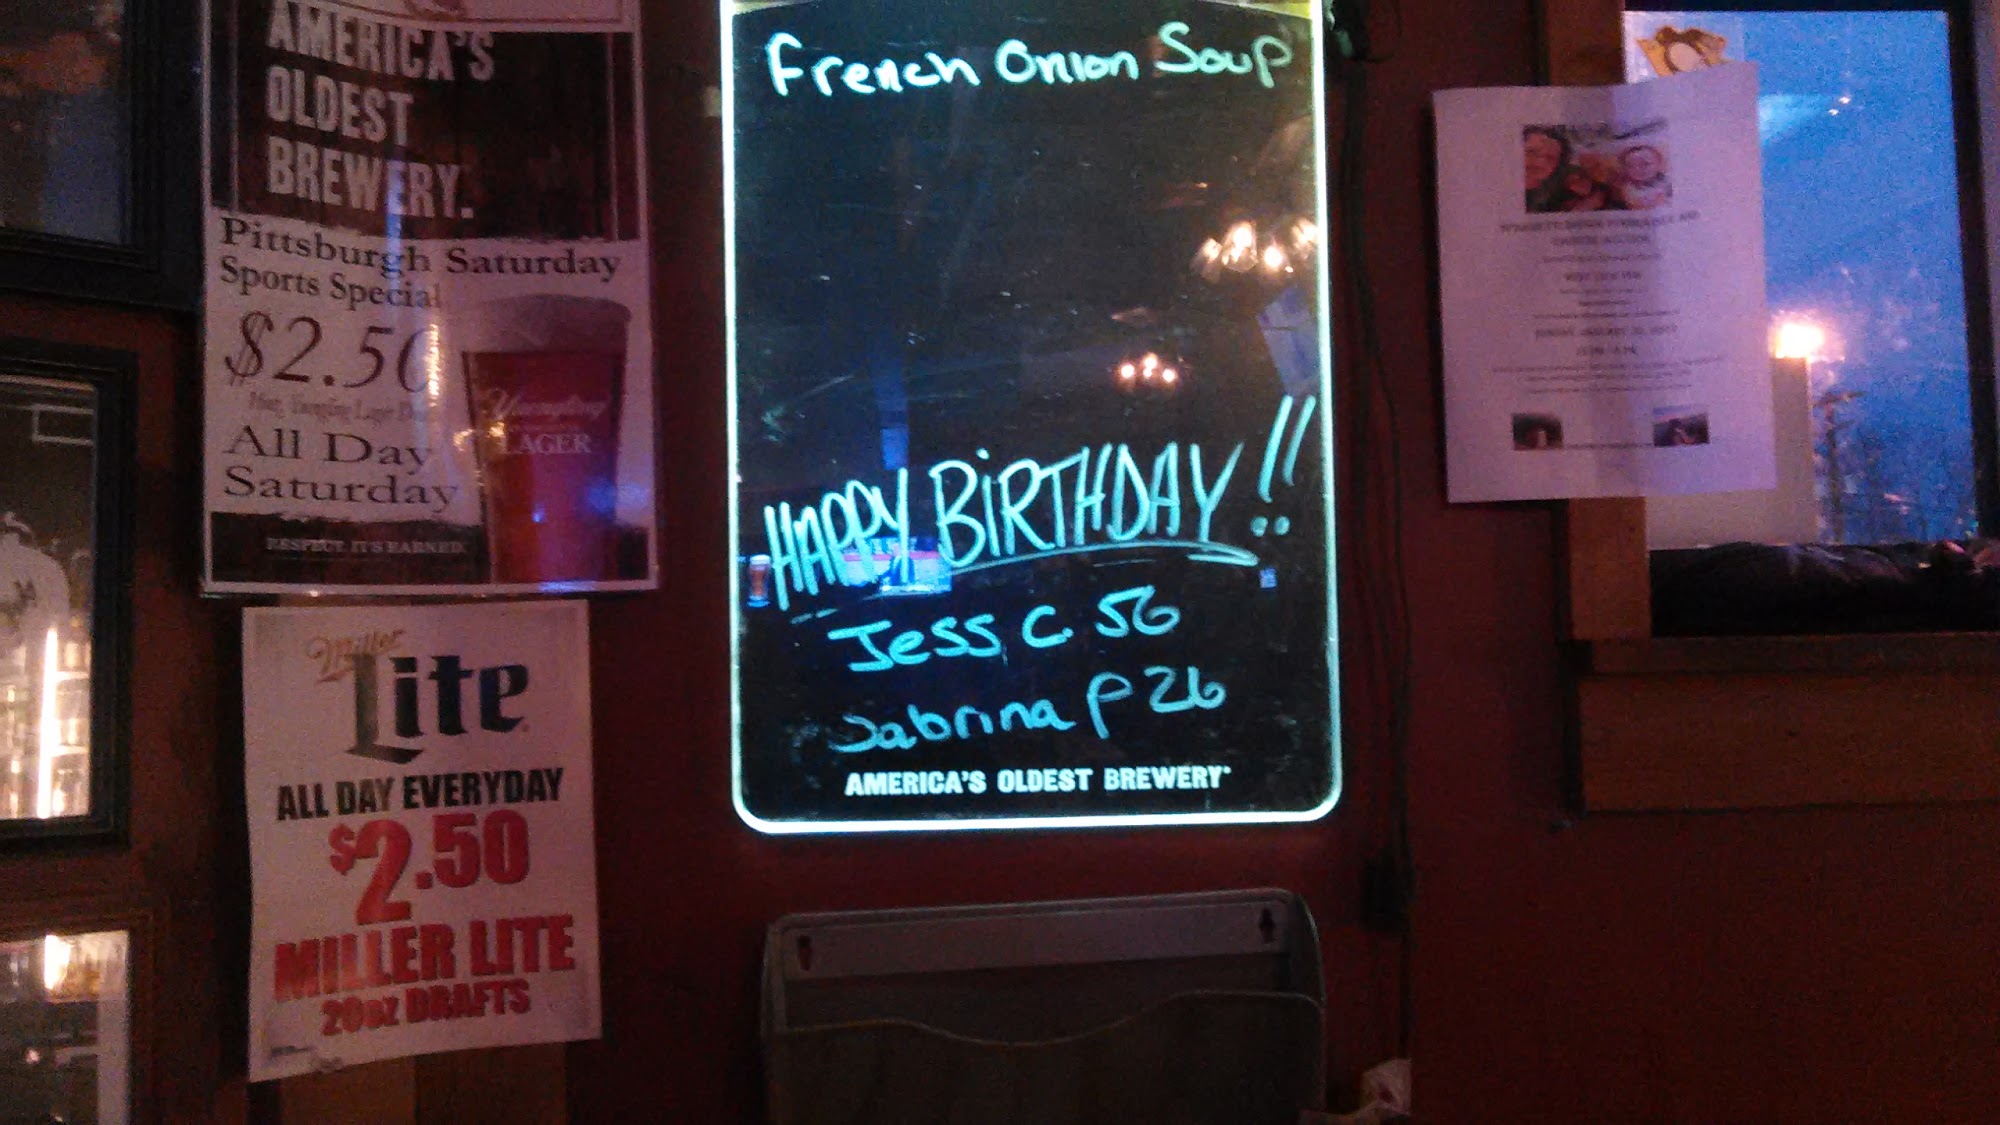 AMERICA'S
OLDEST
BREWERY.
Pittsburgh Saturday
Sports Special
$2.50
All Day
Saturday
Yuengling
LAGER
RESPECT. IT'S EARNED.
Miller
Lite
ALL DAY EVERYDAY
$2.50
MILLER LITE
20oz DRAFTS
French Onion Soup
HAPPY BIRTHDAY!!
Jess C 56
Sabrina P 26
AMERICA'S OLDEST BREWERY